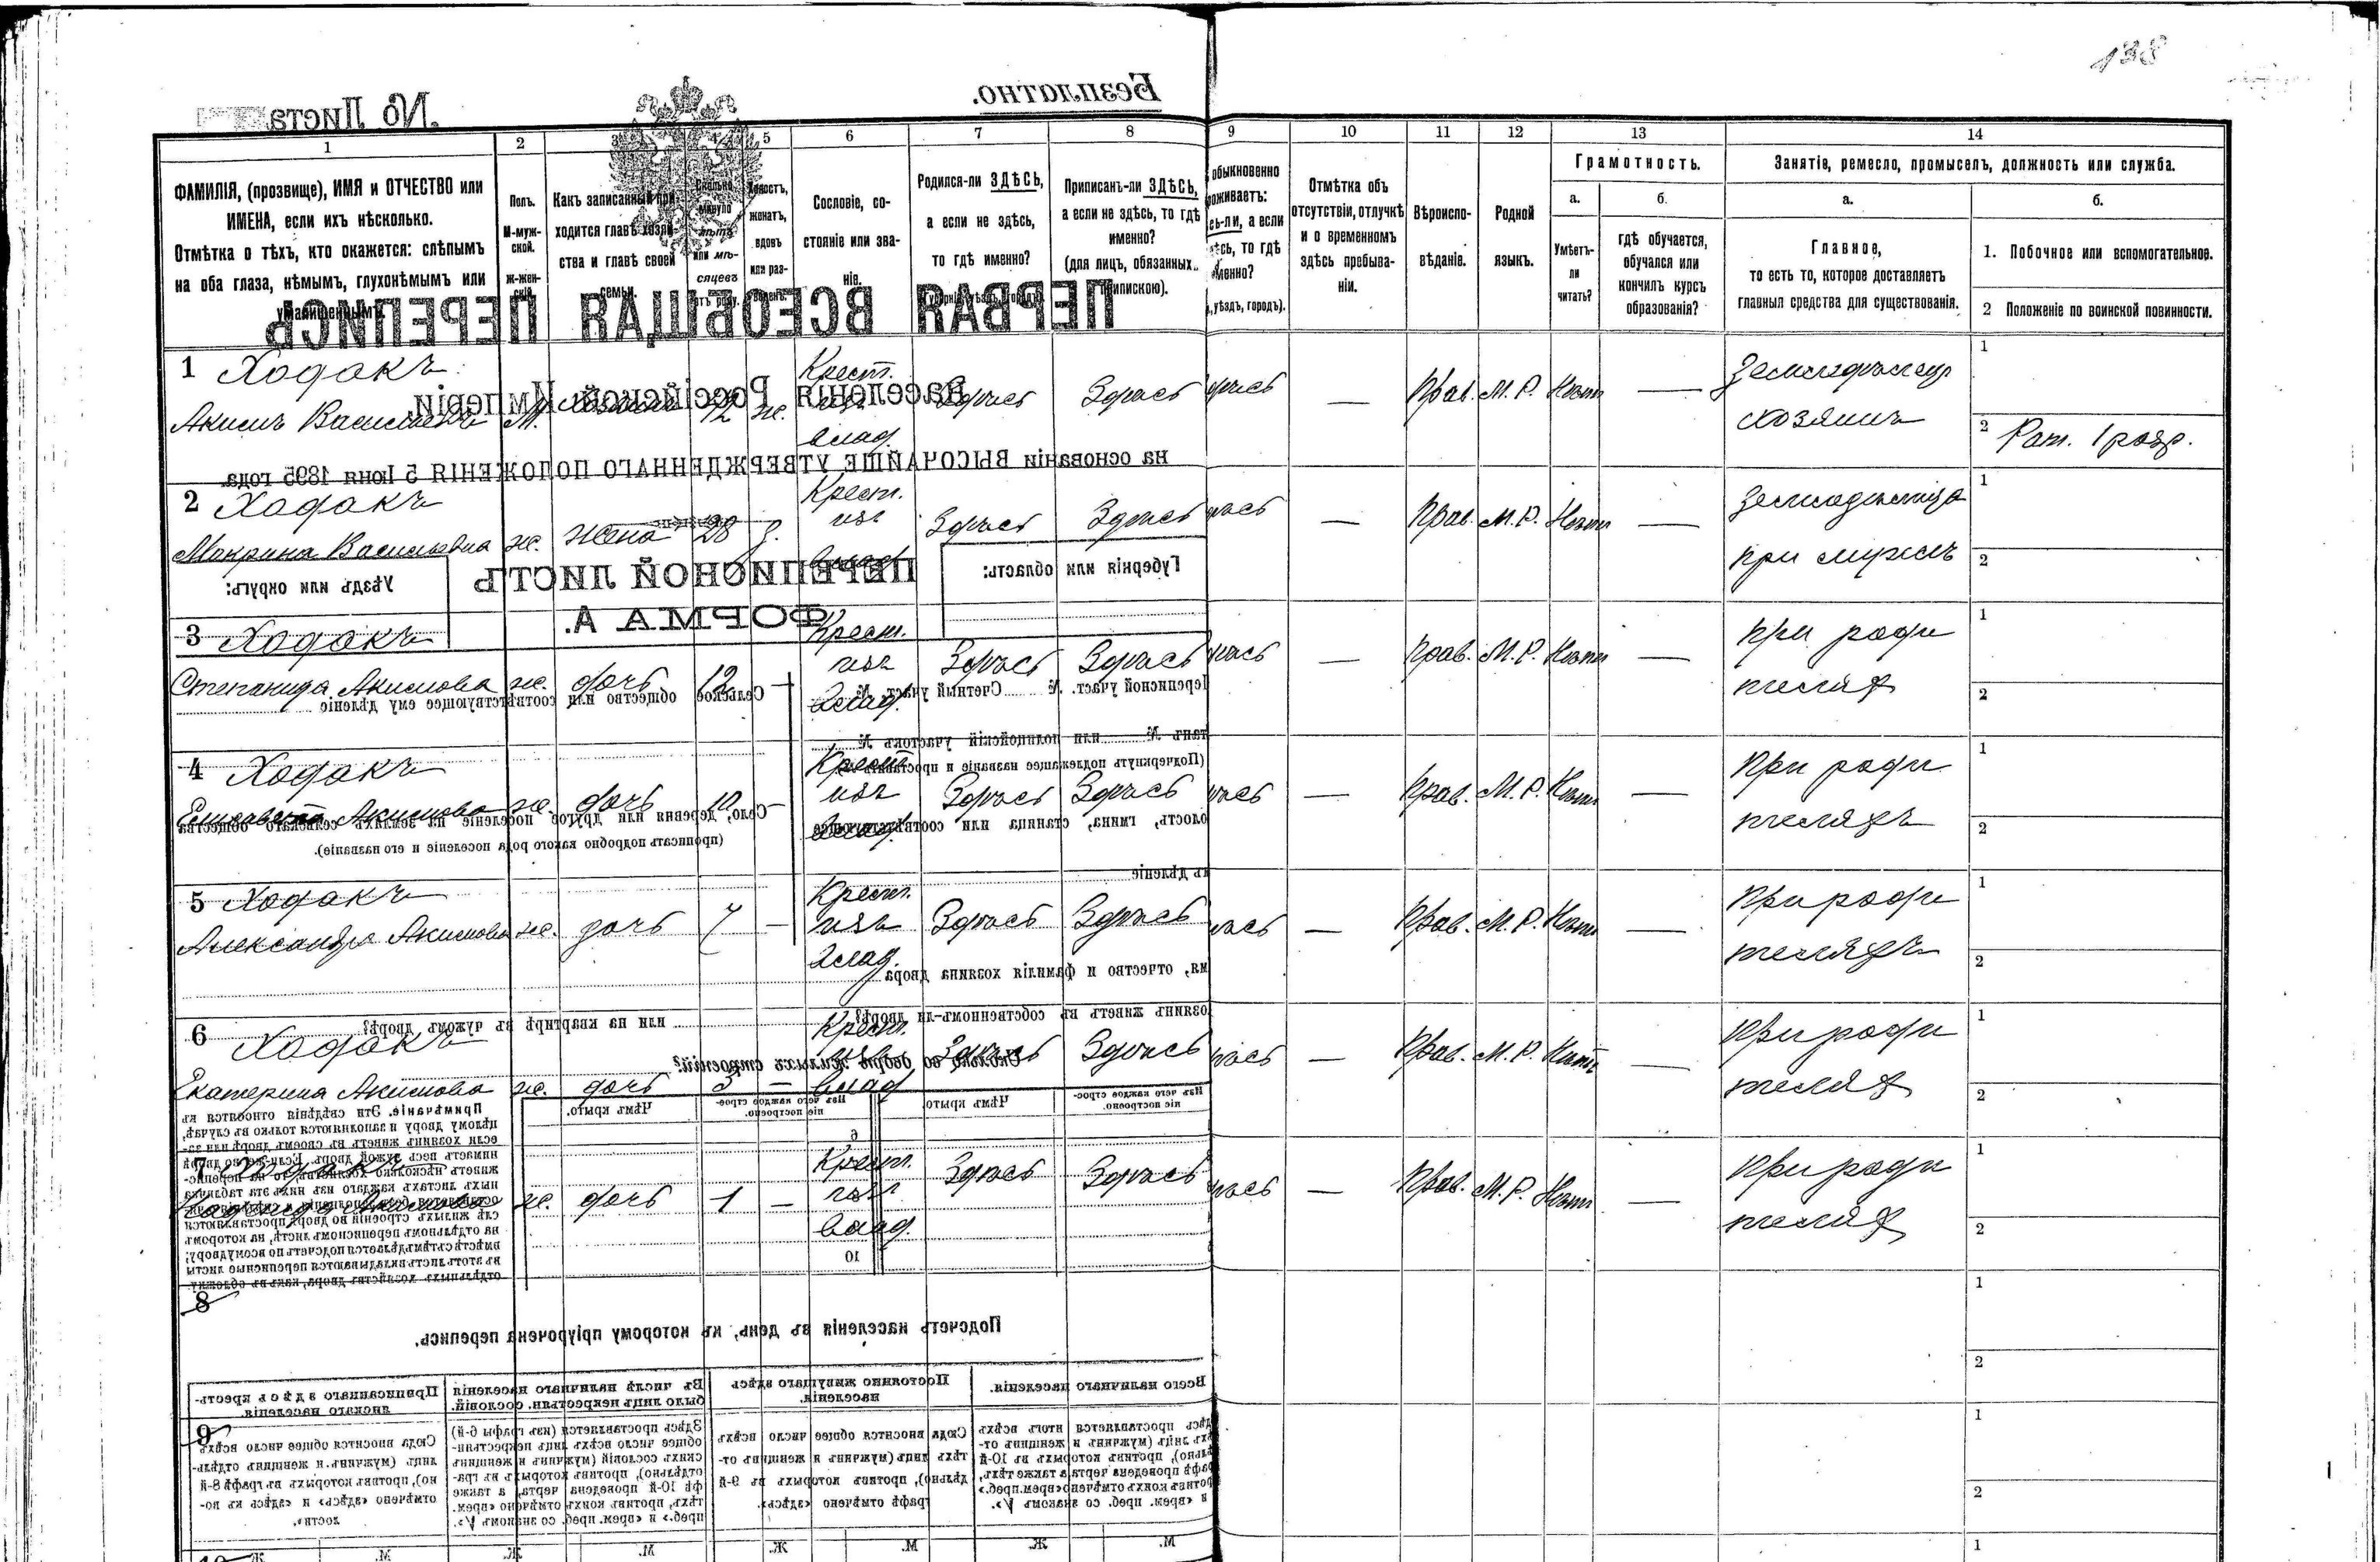 138
№ Листа
Безплатно.
1 2 3 4 5 6 7 8 9 10 11 12 13 14
ФАМИЛІЯ, (прозвище), ИМЯ и ОТЧЕСТВО или
ИМЕНА, если ихъ нѣсколько.
Отмѣтка о тѣхъ, кто окажется: слѣпымъ
на оба глаза, нѣмымъ, глухонѣмымъ или
умалишеннымъ.
Полъ.
М-муж-
ской.
ж-жен-
скій.
Какъ записанный при-
ходится главѣ хозяй-
ства и главѣ своей
семьи.
Сколько
минуло
лѣтъ
или мѣ-
сяцевъ
отъ роду.
Холостъ,
женатъ,
вдовъ
или раз-
веденъ.
Сословіе, со-
стояніе или зва-
ніе.
Родился-ли ЗДѢСЬ,
а если не здѣсь,
то гдѣ именно?
Приписанъ-ли ЗДѢСЬ,
а если не здѣсь, то гдѣ
именно?
(для лицъ, обязанныхъ
припискою).
обыкновенно
оживаетъ:
сь-ли, а если
ѣсь, то гдѣ
менно?
, уѣздъ, городъ).
Отмѣтка объ
отсутствіи, отлучкѣ
и о временномъ
здѣсь пребыва-
ніи.
Вѣроиспо-
вѣданіе.
Родной
языкъ.
Грамотность.
а.
Умѣетъ-
ли
читать?
б.
гдѣ обучается,
обучался или
кончилъ курсъ
образованія?
Занятіе, ремесло, промыселъ, должность или служба.
а.
Главное,
то есть то, которое доставляетъ
главныя средства для существованія.
б.
1. Побочное или вспомогательное.
2 Положеніе по воинской повинности.
ПЕРВАЯ ВСЕОБЩАЯ ПЕРЕПИСЬ
населенія Россійской Имперіи,
на основаніи ВЫСОЧАЙШЕ УТВЕРЖДЕННАГО ПОЛОЖЕНІЯ 5 Іюня 1895 года.
1 Ходакъ
Акимъ Васильевъ М. ж. Крест. изъ влад. Здѣсь Здѣсь — Прав. М. Р. Нѣтъ — Земледѣлец хозяинъ
1
2 Рат. 1 разр.
2 Ходакъ
Макрина Васильевна ж. жена 28 з. Крест. изъ влад. Здѣсь Здѣсь — Прав. М. Р. Нѣтъ — Земледѣлица при мужѣ
1
2
Губернія или область:
Уѣздъ или округъ:
ПЕРЕПИСНОЙ ЛИСТЪ
ФОРМА А.
3 Ходакъ
Степанида Акимова ж. дочь 12 — Крест. изъ влад. Здѣсь Здѣсь — Прав. М. Р. Нѣтъ — при роди теляхъ
1
2
Переписной участ. № Счетный участ. №
Сельское общество или соотвѣтствующее ему дѣленіе
станъ № или полицейскій участокъ №
(Подчеркнуть подлежащее названіе и проставить №)
4 Ходакъ
Елизавета Акимова ж. дочь 10 — Крест. изъ влад. Здѣсь Здѣсь — Прав. М. Р. Нѣтъ — При роди теляхъ
1
2
олость, гмина, станица или соотвѣтствующее
Село, деревня или другое поселеніе на земляхъ сельскаго общества
(прописать подробно какого рода поселеніе и его названіе).
ъ дѣленіе
5 Ходакъ
Александра Акимова ж. дочь 7 — Крест. изъ влад. Здѣсь Здѣсь — Прав. М. Р. Нѣтъ — При роди теляхъ
1
2
мя, отчество и фамилія хозяина двора
озяинъ живетъ въ собственномъ-ли дворѣ? или на квартирѣ въ чужомъ дворѣ?
6 Ходакъ
Екатерина Акимова ж. дочь 3 — Крест. изъ влад Здѣсь Здѣсь — Прав. М. Р. Нѣтъ — При роди теляхъ
1
2
Сколько во дворѣ жилыхъ строеній?
Изъ чего каждое строе-
ніе построено.
Чѣмъ крыто
Изъ чего каждое строе-
ніе построено.
Чѣмъ крыто.
6
10
Примѣчаніе. Эти свѣдѣнія относятся къ
цѣлому двору и заполняются только въ случаѣ,
если хозяинъ живетъ въ своемъ дворѣ или за-
нимаетъ весь чужой дворъ. Если-же во дворѣ
живетъ нѣсколько хозяйствъ, то на перепис-
ныхъ листахъ каждаго изъ нихъ эта табличка
слѣ жилыхъ строеній во дворѣ проставляются
на отдѣльномъ переписномъ листѣ, на которомъ
вмѣстѣ съ тѣмъ дѣлается подсчетъ по всему двору;
въ этотъ листъ вкладываются переписные листы
отдѣльныхъ хозяйствъ двора, какъ въ обложку.
7 Ходакъ
Акимова ж. дочь 1 — Крест. изъ влад. Здѣсь Здѣсь — Прав. М. Р. Нѣтъ — При роди теляхъ
1
2
8
1
2
Подсчетъ населенія въ день, къ которому пріурочена перепись.
Всего наличнаго населенія.
Постоянно живущаго здѣсь
населенія.
Въ числѣ наличнаго населенія
было лицъ некрестьян. сословій.
Приписаннаго здѣсь кресть-
янскаго населенія.
9
1
2
дѣсь проставляется итогъ всѣхъ
ѣхъ лицъ (мужчинъ и женщинъ от-
ѣльно), противъ которыхъ въ 10-й
рафѣ проведена черта, а также тѣхъ,
ротивъ коихъ отмѣчено «врем. преб.»
и «врем. преб. со знакомъ V».
Сюда вносится общее число всѣхъ
тѣхъ лицъ (мужчинъ и женщинъ от-
дѣльно), противъ которыхъ въ 9-й
графѣ отмѣчено «здѣсь».
Здѣсь проставляется (изъ графы 6-й)
общее число всѣхъ лицъ некрестьян-
скихъ сословій (мужчинъ и женщинъ
отдѣльно), противъ которыхъ въ гра-
фѣ 10-й проведена черта, а также
тѣхъ, противъ коихъ отмѣчено «врем.
преб.» и «врем. преб. со знакомъ V».
Сюда вносится общее число всѣхъ
лицъ (мужчинъ и женщинъ отдѣль-
но), противъ которыхъ въ графѣ 8-й
отмѣчено «здѣсь» и «здѣсь къ во-
лости».
М. Ж. М. Ж. М. Ж. М. Ж.
1